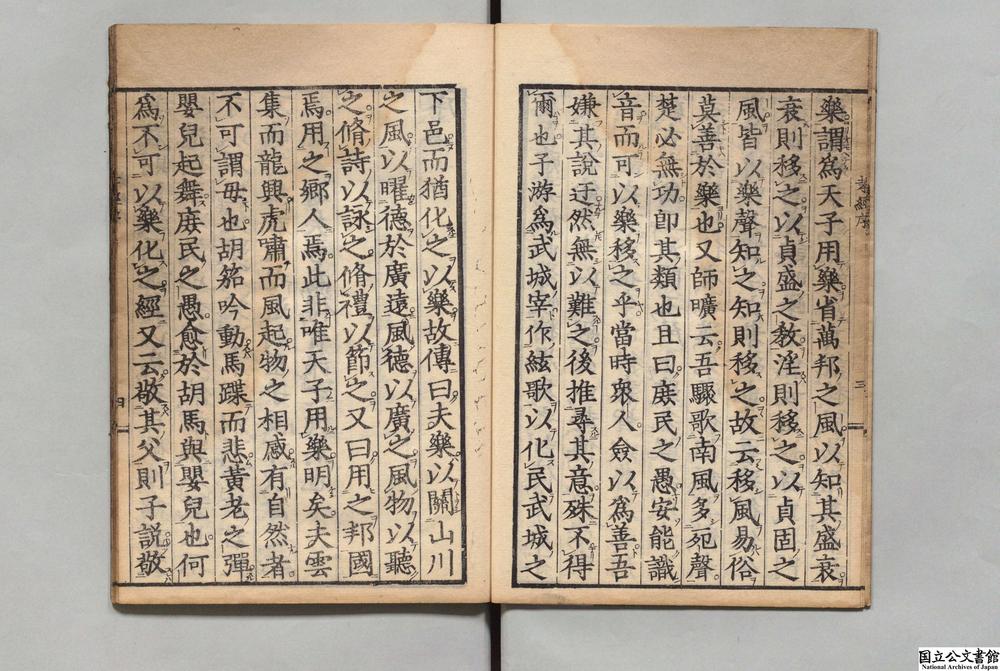 樂謂爲天子用樂省萬邦之風以知其盛衰
衰則移之以貞盛之教淫則移之以貞固之
風皆以樂聲知之知則移之故云移風易俗
莫善於樂也又師曠云吾驟歌南風多死聲
楚必無功卽其類也且曰庶民之愚安能識
音而可以樂移之乎當時衆人僉以爲善吾
嫌其說迂然無以難之後推尋其意殊不得
爾也子游爲武城宰作絃歌以化民武城之
下邑而猶化之以樂故傳曰夫樂以關山川
之風以曜德於廣遠風德以廣之風物以聽
之脩詩以詠之脩禮以節之又曰用之邦國
焉用之鄉人焉此非唯天子用樂明矣夫雲
集而龍興虎嘯而風起物之相感有自然者
不可謂毋也胡笳吟動馬蹀而悲黃老之彈
嬰兒起舞庶民之愚愈於胡馬與嬰兒也何
爲不可以樂化之經又云敬其父則子說敬
三
四
国立公文書館
National Archives of Japan